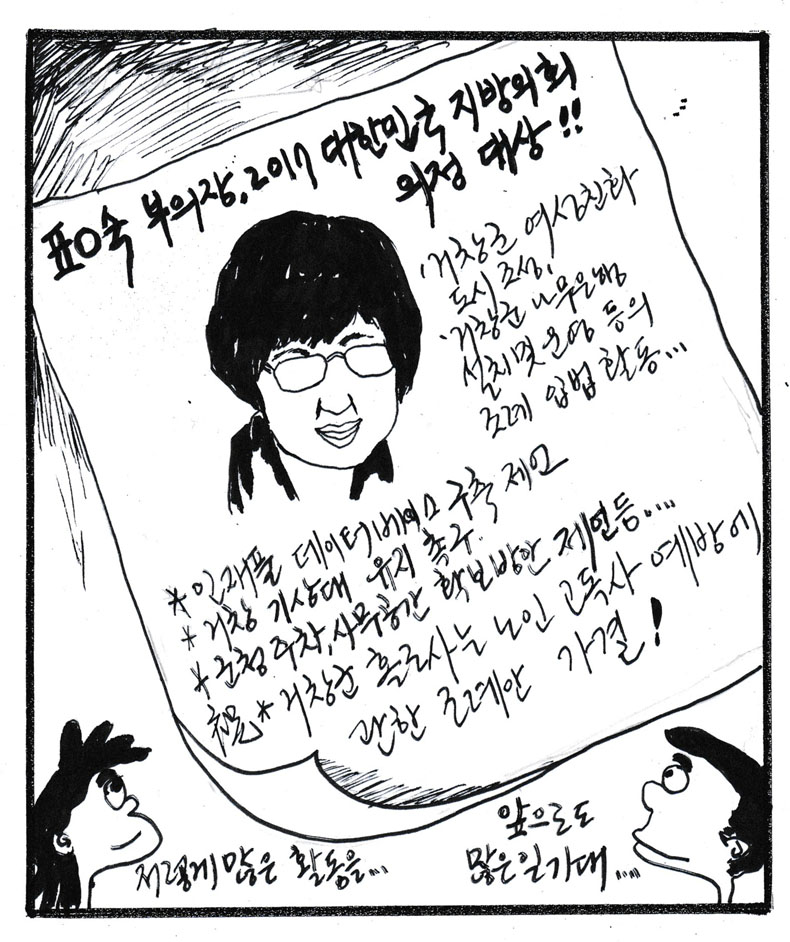 표O숙 부의장, 2017 대한민국 지방의회
의정 대상!!
·거창군 여성친화
도시 조성,
·거창군 나무은행
설치 및 운영 등의
조례 입법 활동...
*인재풀 데이터베이스 구축 제언
*거창 기상대 유지 촉구.
*군청 주차, 사무공간 확보방안 제언등....
祝*거창군 홀로사는 노인 고독사 예방에
관한 조례안 가결!
저렇게 많은 활동을...
앞으로도
많은일 기대.....